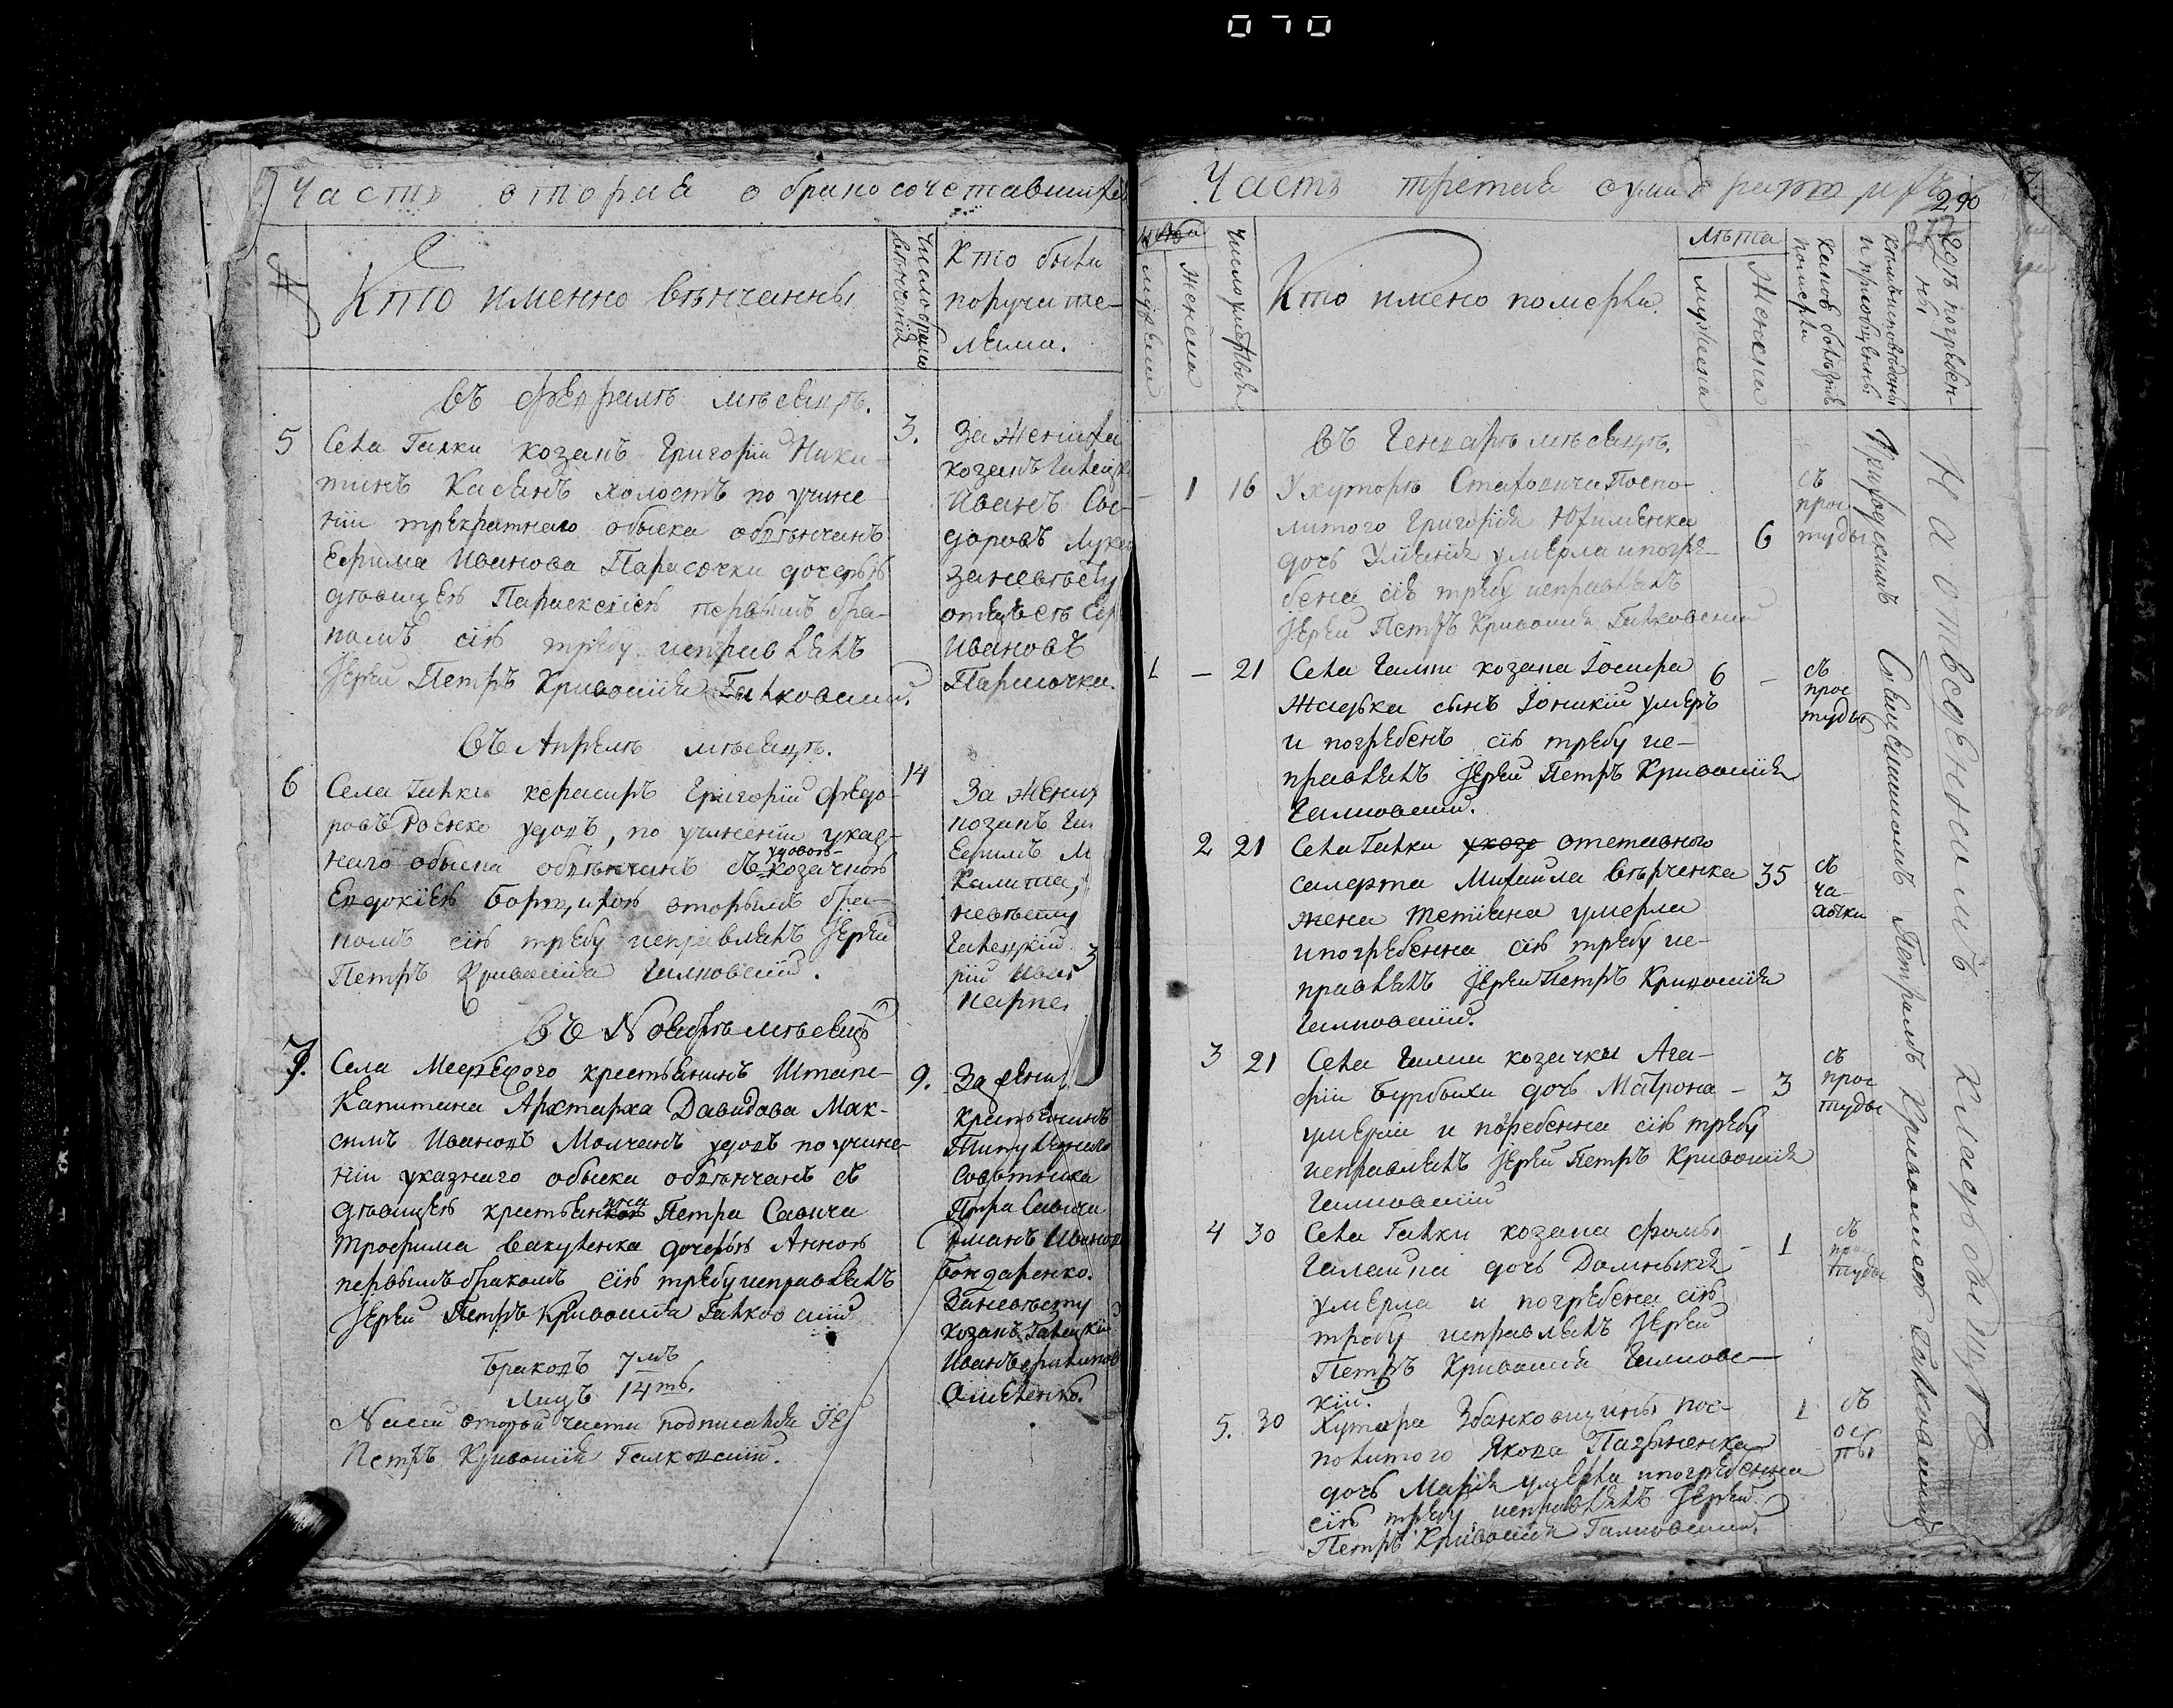 070
Часть вторая о браносочетавшихся
№
Кто именно венчанны
Число брако венчаний
Кто были
поручите-
лями.
въ февралѣ мѣсецѣ.
5
3.
Села Галки козакъ Григорій Ники-
тинъ Касянъ холостъ по учине
ніи трекратнаго обыска обвѣнчанъ
Ефрима Иванова Парасочки дочерью
дѣвицею Параскевіею первымъ бра-
комъ сію требу исправлялъ
Іерей Петръ Кривошія Галковский.
За жениха
козакъ Галецк
Иванъ Сае-
доровъ Лука
За невѣсту
отецъ еѣ Еф
Ивановъ
Парасочка.
въ Апрелѣ мѣсецѣ.
6
14
Села Галки керасиръ Григорій Федо-
ровъ Роенко удовъ, по учиненіи указ-
наго обыска обвѣнчанъ съ козачкою
удовою
Евдокіею вторымъ бра-
комъ сію требу исправлялъ Іерей
Петръ Кривошія Галковскій.
За жених
козакъ Гал
Ефимъ М
Калита,
невѣсту
Галецкій
рій Иван
Карпе
въ Ноябрѣ мѣсецѣ
7.
9.
Села Медвежого крестьянинъ Штапс-
Капитана Аристарха Давидова Мак-
симъ Ивановъ Молчанъ удовъ по учине-
ніи указнаго обыска обвѣнчанъ съ
дѣвицею крестьянина Петра Савича
Трофима Вакуленка дочерью Анною
первымъ бракомъ сію требу исправлялъ
Іерей Петръ Кривошія Галковскій
За жених
крестьянинъ
Титулярнаго
Совѣтника
Петра Савича
Романъ Иванов
Бондаренко.
За невѣсту
козакъ Галецкій
Иванъ Филипов
браковъ 7мъ
лицъ 14ть.
Петръ Кривошія Галковскій.
Часть третая о умирающихъ
290
мужеска
женска
Число умертвія
Кто имено померли.
лѣта
мужеска
женска
какою болѣзнею померли
кѣмъ исповѣданы и пріобщены
Где погребен-
ны
въ Генварѣ мѣсецѣ.
— 1 16
У хуторѣ Стаховича Поспо-
литого Григорія Юхименка
дочь Улияния умерла и погре-
бена сію требу исправлялъ
Іерей Петръ Кривошія Галковский
6
съ
прос
туды
1 — 21
Села Галки козака Іосифа
Жадька сынъ Іоникій умеръ
и погребенъ сію требу ис-
правлялъ Іерей Петръ Кривошія
Галковский.
6 —
съ
прос
туды
2 21
Села Галки отставного
салдата Михайла Вѣрченка
жена Тетіяна умерла
и погребенна сію требу ис-
правлялъ Іерей Петръ Кривошія
Галковский.
35
съ
ча-
хотки
3 21
Села Галки козачки Ага-
фіи Бурбыхи дочь Матрона
умерла и погребенна сію требу
исправлялъ Іерей Петръ Кривошія
Галковский
— 3
съ
прос
туды
4 30
Села Галки козака Фомы
дочь Домныкія
умерла и погребена сію
требу исправлялъ Іерей
Петръ Кривошія Галковс-
кій.
— 1
съ
прос
туды
5. 30
Хутора Збанковщины пос-
политого Якова
дочь Марія умерла и погребенна
сію требу исправлялъ Іерей
Петръ Кривошія Галковский.
1
съ
ос
пы
Приходскимъ Священникомъ Петромъ Кривошіею Галковскимъ
На отведенномъ кладбищѣ